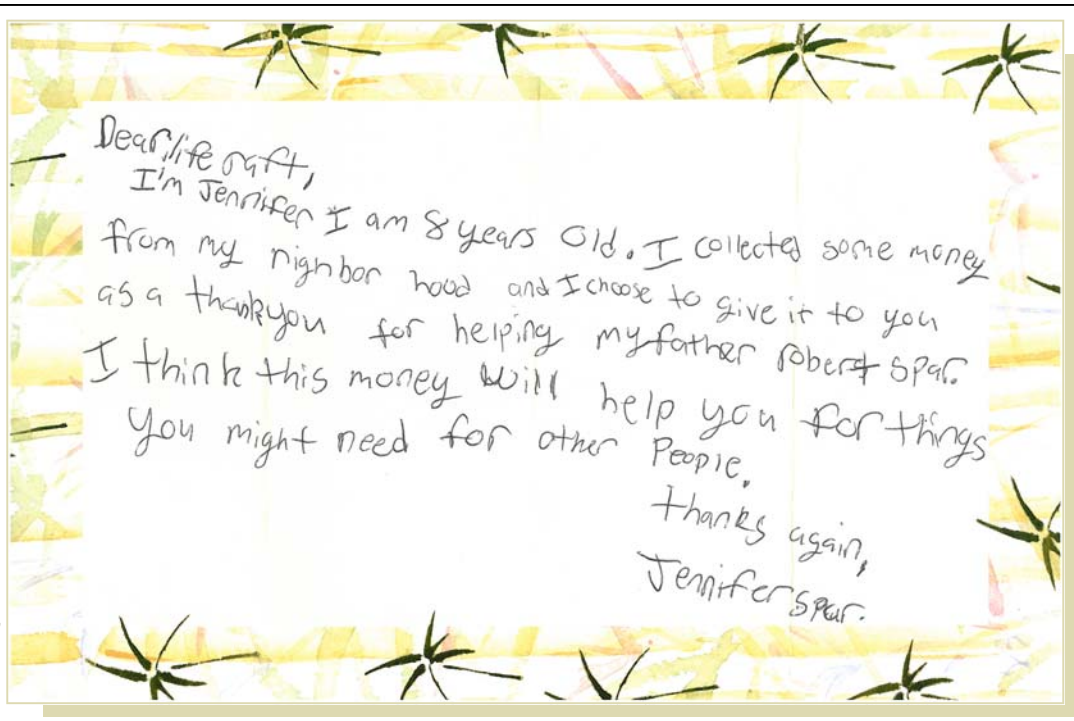 Dear life raft,
I'm Jennifer I am 8 years old. I collected some money
from my nighbor hood and I choose to give it to you
as a thankyou for helping my father robert spar.
I think this money will help you for things
you might need for other People.
thanks again,
Jennifer spar.